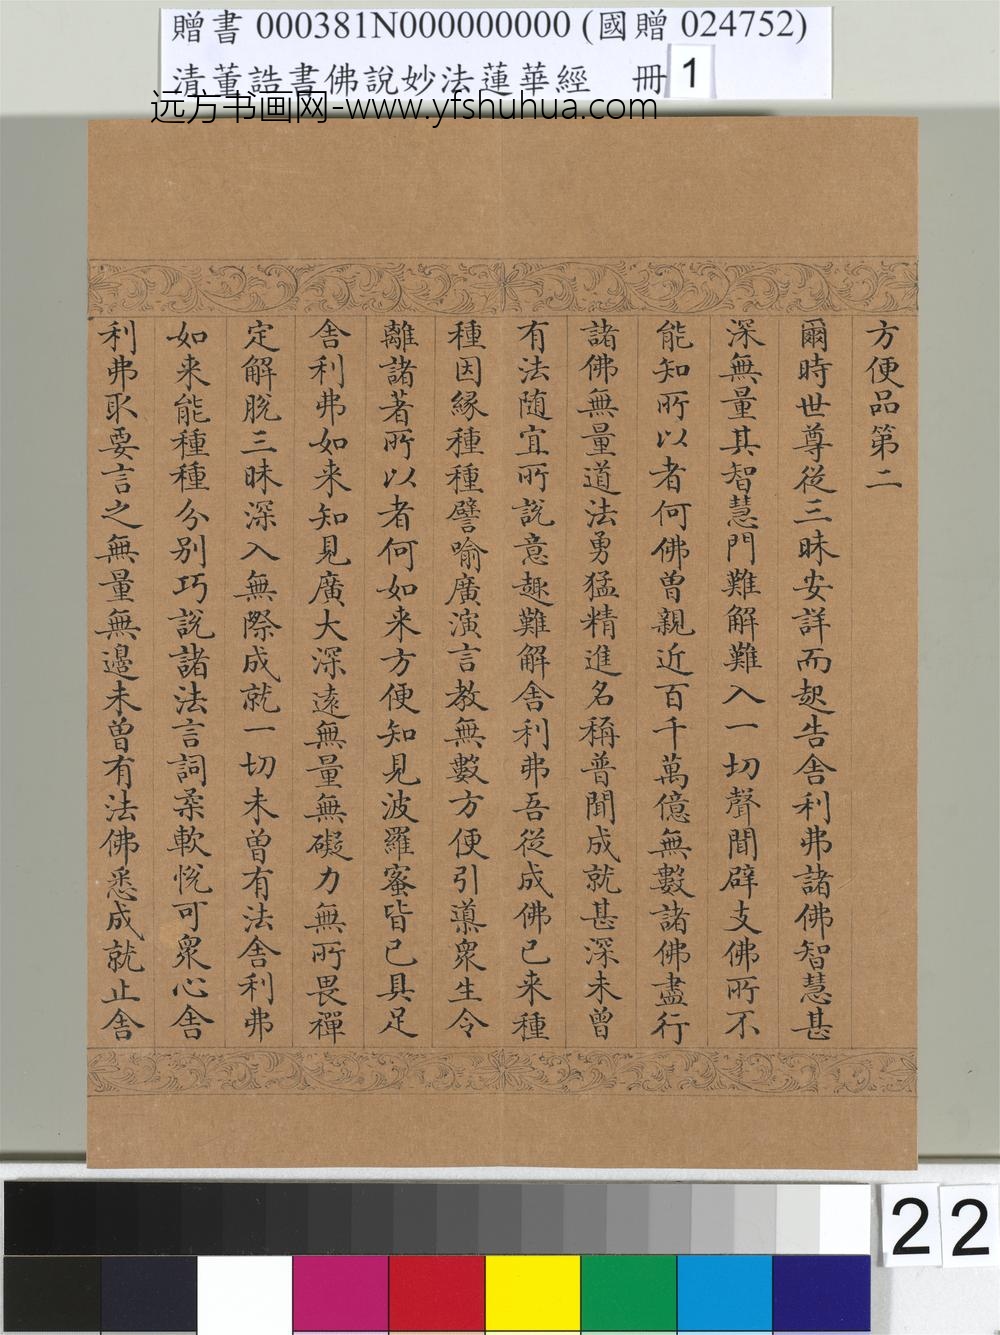 贈書 000381N000000000 (國贈 024752)
清董誥書佛說妙法蓮華經 冊 1
远方书画网-www.yfshuhua.com
方便品第二
爾時世尊從三昧安詳而起告舍利弗諸佛智慧甚
深無量其智慧門難解難入一切聲聞辟支佛所不
能知所以者何佛曾親近百千萬億無數諸佛盡行
諸佛無量道法勇猛精進名稱普聞成就甚深未曾
有法随宜所説意趣難解舍利弗吾從成佛已来種
種因緣種種譬喻廣演言教無數方便引導衆生令
離諸著所以者何如来方便知見波羅蜜皆已具足
舍利弗如来知見廣大深遠無量無礙力無所畏禪
定解脫三昧深入無際成就一切未曾有法舍利弗
如来能種種分别巧説諸法言詞柔軟悅可衆心舍
利弗取要言之無量無邊未曾有法佛悉成就止舍
22